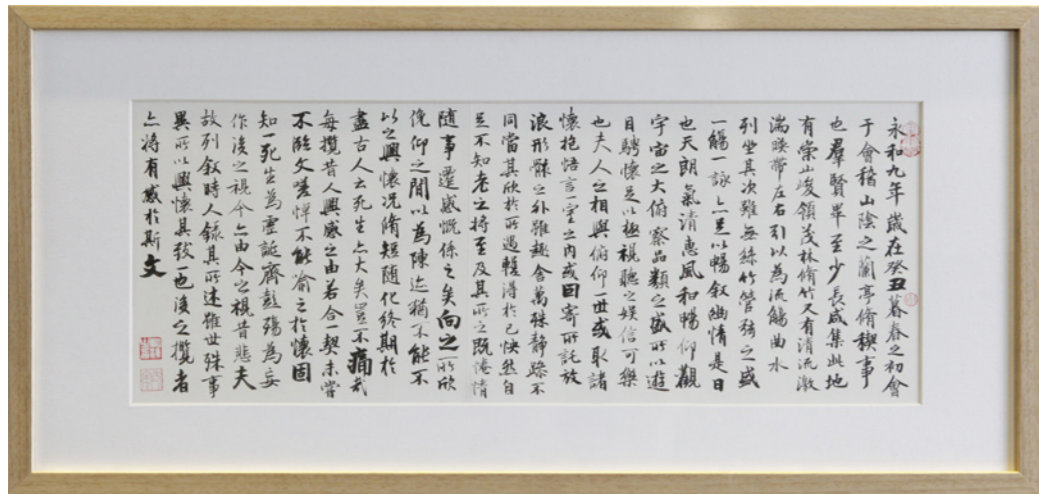 永和九年歲在癸丑暮春之初會
于會稽山陰之蘭亭脩稧事
也羣賢畢至少長咸集此地
有崇山峻領茂林脩竹又有清流激
湍暎帶左右引以為流觴曲水
列坐其次雖無絲竹管弦之盛
一觴一詠亦足以暢敘幽情是日
也天朗氣清惠風和暢仰觀
宇宙之大俯察品類之盛所以遊
目騁懷足以極視聽之娛信可樂
也夫人之相與俯仰一世或取諸
懷抱悟言一室之內或因寄所託放
浪形骸之外雖趣舍萬殊靜躁不
同當其欣於所遇蹔得於己怏然自
足不知老之將至及其所之既惓情
隨事遷感慨係之矣向之所欣
俛仰之間以為陳迹猶不能不
以之興懷況脩短隨化終期於
盡古人云死生亦大矣豈不痛哉
每攬昔人興感之由若合一契未嘗
不臨文嗟悼不能喻之於懷固
知一死生為虛誕齊彭殤為妄
作後之視今亦由今之視昔悲夫
故列敘時人錄其所述雖世殊事
異所以興懷其致一也後之攬者
亦將有感於斯文